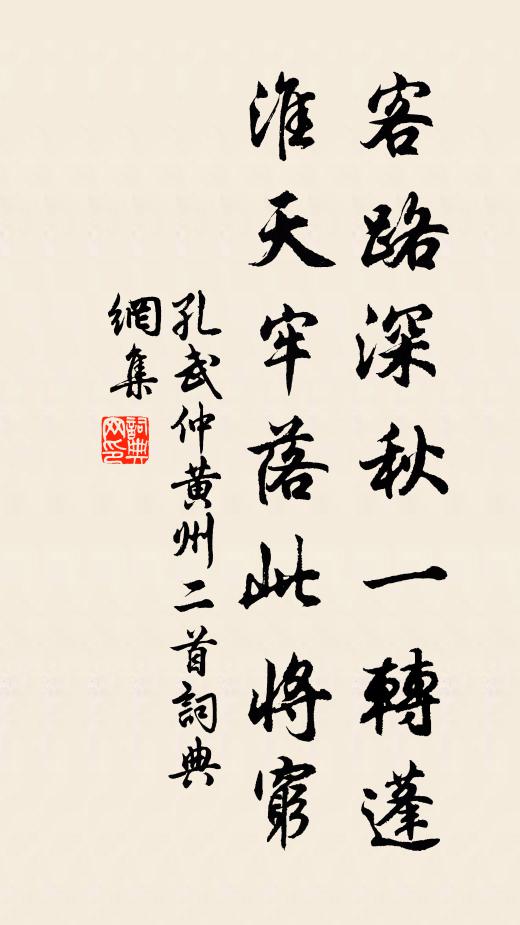 客路深秋一轉蓬
淮天牢落此將窮
孔武仲黃州二首詞典
網集
詞典
网印